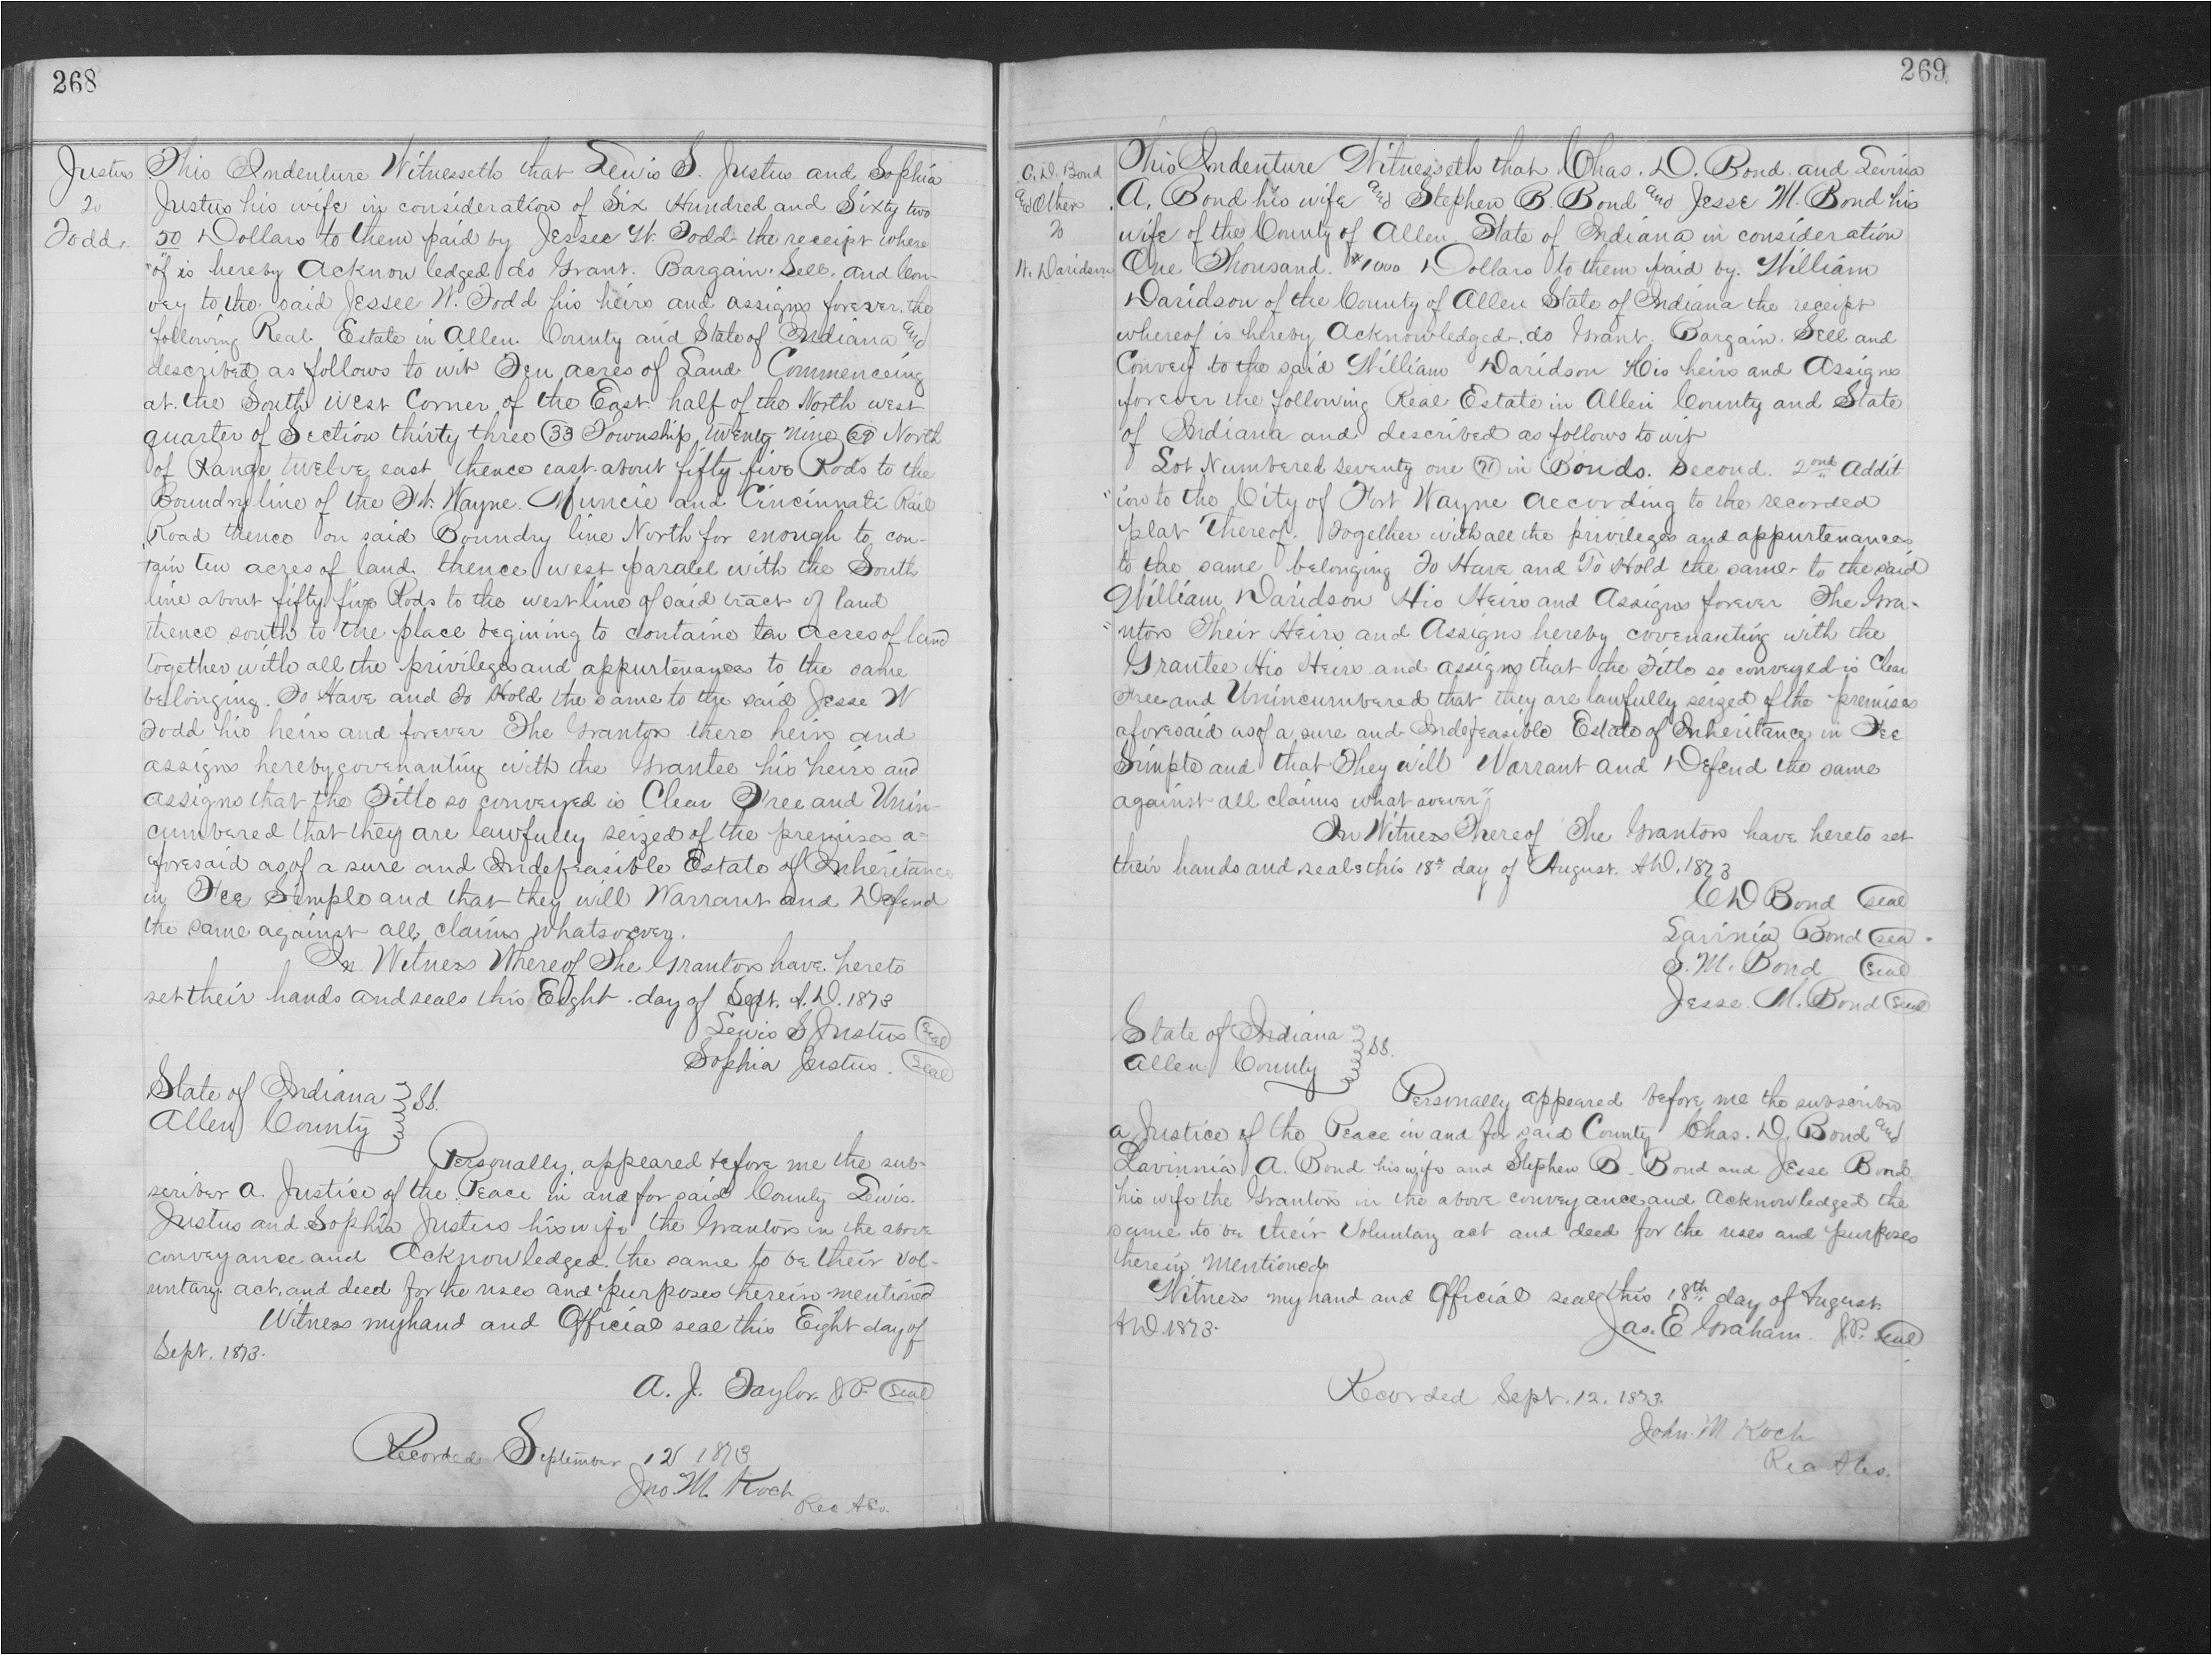 268
Justus
to
Todd.
This Indenture Witnesseth that Lewis S. Justus and Sophia
Justus his wife in consideration of Six Hundred and Sixty two
50 Dollars to them paid by Jessee W. Todd the receipt where
"of is hereby Acknow ledged do Grant. Bargain. Sell. and Con-
vey to the said Jessee W. Todd his heirs and assigns forever. the
following Real Estate in Allen County and State of Indiana and
described as follows to wit Ten acres of Land Commenceing
at the South West Corner of the East half of the North west
quarter of Section thirty three (33) Township twenty nine (29) North
of Range twelve east thence east about fifty five Rods to the
Boundry line of the Ft. Wayne. Muncie and Cincinnati Rail
Road thence on said Boundry line North for enough to con-
"tain ten acres of land thence west paralel with the South
line about fifty five Rods to the west line of said tract of land
thence south to the place begining to containe ten acres of land
together with all the privileges and appurtenances to the same
bellonging. To Have and To Hold the same to the said Jesse W
Todd his heirs and forever The Grantors there heirs and
assigns hereby covenanting with the Grantee his heirs and
assigns that the Title so conveyed is Clear Free and Unin-
cumbered that they are lawfully seized of the premises a=
foresaid as of a sure and Indefeasible Estate of Inheritance
in Fee Simple and that they will Warrant and Defend
the same against all claims whatsoever.
In Witness Whereof The Grantors have hereto
set their hands and seals this Eight day of Sept. A.D. 1873
Lewis S Justus (Seal)
Sophia Justus. (Seal)
State of Indiana } SS.
Allen County
Personally appeared before me the sub-
scriber a Justice of the Peace in and for said County Lewis.
Justus and Sophia Justus his wife the Grantors in the above
conveyance and Acknowledged the same to be their vol-
untary act, and deed for the uses and purposes therein mentioned
Witness my hand and Official seal this Eight day of
Sept. 1873.
A. J. Taylor. J.P. (Seal)
Recorded September 12 1873
Jno. M. Koch
Rec A Co.
269
C. D. Bond
and Other
to
W. Davidson
This Indenture Witnesseth that Chas. D. Bond and Levina
A. Bond his wife and Stephen B. Bond and Jesse M. Bond his
wife of the County of Allen State of Indiana in consideration
One Thousand. $1000 Dollars to them paid by. William
Davidson of the County of Allen State of Indiana the receipt
whereof is hereby Acknowledged. do Grant. Bargain. Sell and
Convey to the said William Davidson His heirs and Assigns
forever the following Real Estate in Allen County and State
of Indiana and described as follows to wit
Lot Numbered seventy one (71) in Bonds. Second. 2ond Addit
"ion to the City of Fort Wayne according to the recorded
plat Thereof. Together with all the privileges and appurtenances
to the same belonging To Have and To Hold the same to the said
William Davidson His Heirs and Assigns forever The Gra-
"ntors Their Heirs and Assigns hereby covenanting with the
Grantee His Heirs and assigns that the Title so conveyed is Clear
Free and Unincumbered that they are lawfully seized of the premises
aforesaid as of a sure and Indefeasible Estate of Inheritance in Fee
Simple and that They will Warrant and Defend the same
against all claims what soever"
In Witness Thereof The Grantors have hereto set
their hands and seals this 18th day of August. A.D. 1873
C D Bond (seal)
Lavinia Bond (sea
S. M. Bond (Seal)
Jesse. M. Bond (Seal)
State of Indiana } SS.
Allen County
Personally appeared before me the subscriber
a Justice of the Peace in and for said County Chas. D. Bond and
Lavinnia A. Bond his wife and Stephen B. Bond and Jesse Bond
his wife the Grantors in the above conveyance and Acknowledged the
same to be their Voluntary act and deed for the uses and purposes
therein Mentioned
Witness my hand and Official seal this 18th day of August
A.D. 1873.
Jas. E Graham. J.P. (Seal)
Recorded Sept. 12. 1873.
John. M Koch
Rec A Co.